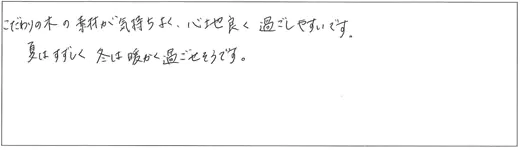 こだわりの木の素材が気持ちよく、心地良く過ごしやすいです。
夏はすずしく冬は暖かく過ごせそうです。